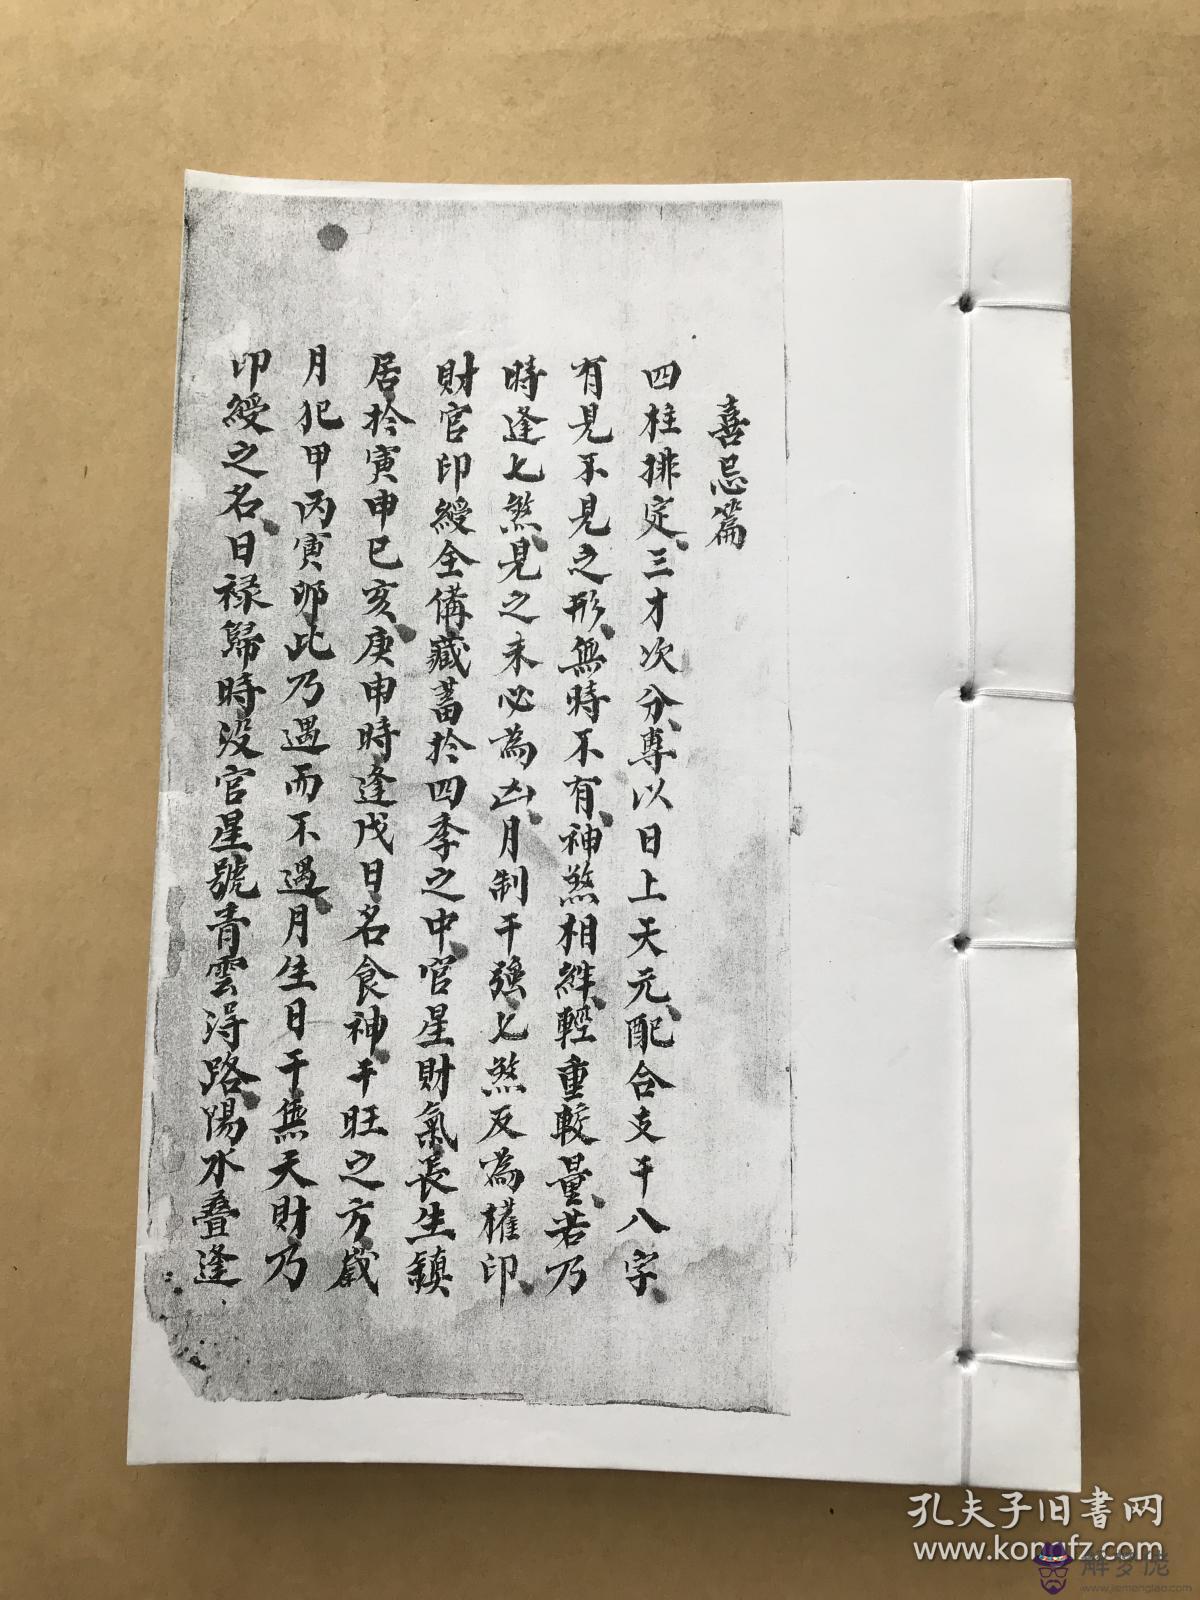 喜忌篇
四柱排定三才次分專以日上天元配合支干八字
有見不見之形無時不有神煞相絆輕重較量若乃
時逢七煞見之未必為凶月制干強七煞反為權印
財官印綬全俻藏蓄扵四季之中官星財氣長生鎮
居扵寅申巳亥庚申時逢戊日名食神干旺之方歲
月犯甲丙寅卯此乃遇而不遇月生日干無天財乃
印綬之名日禄歸時没官星號青雲淂路陽水疊逢
孔夫子旧書网
www.kongfz.com
解梦佬
www.jiemenglao.com